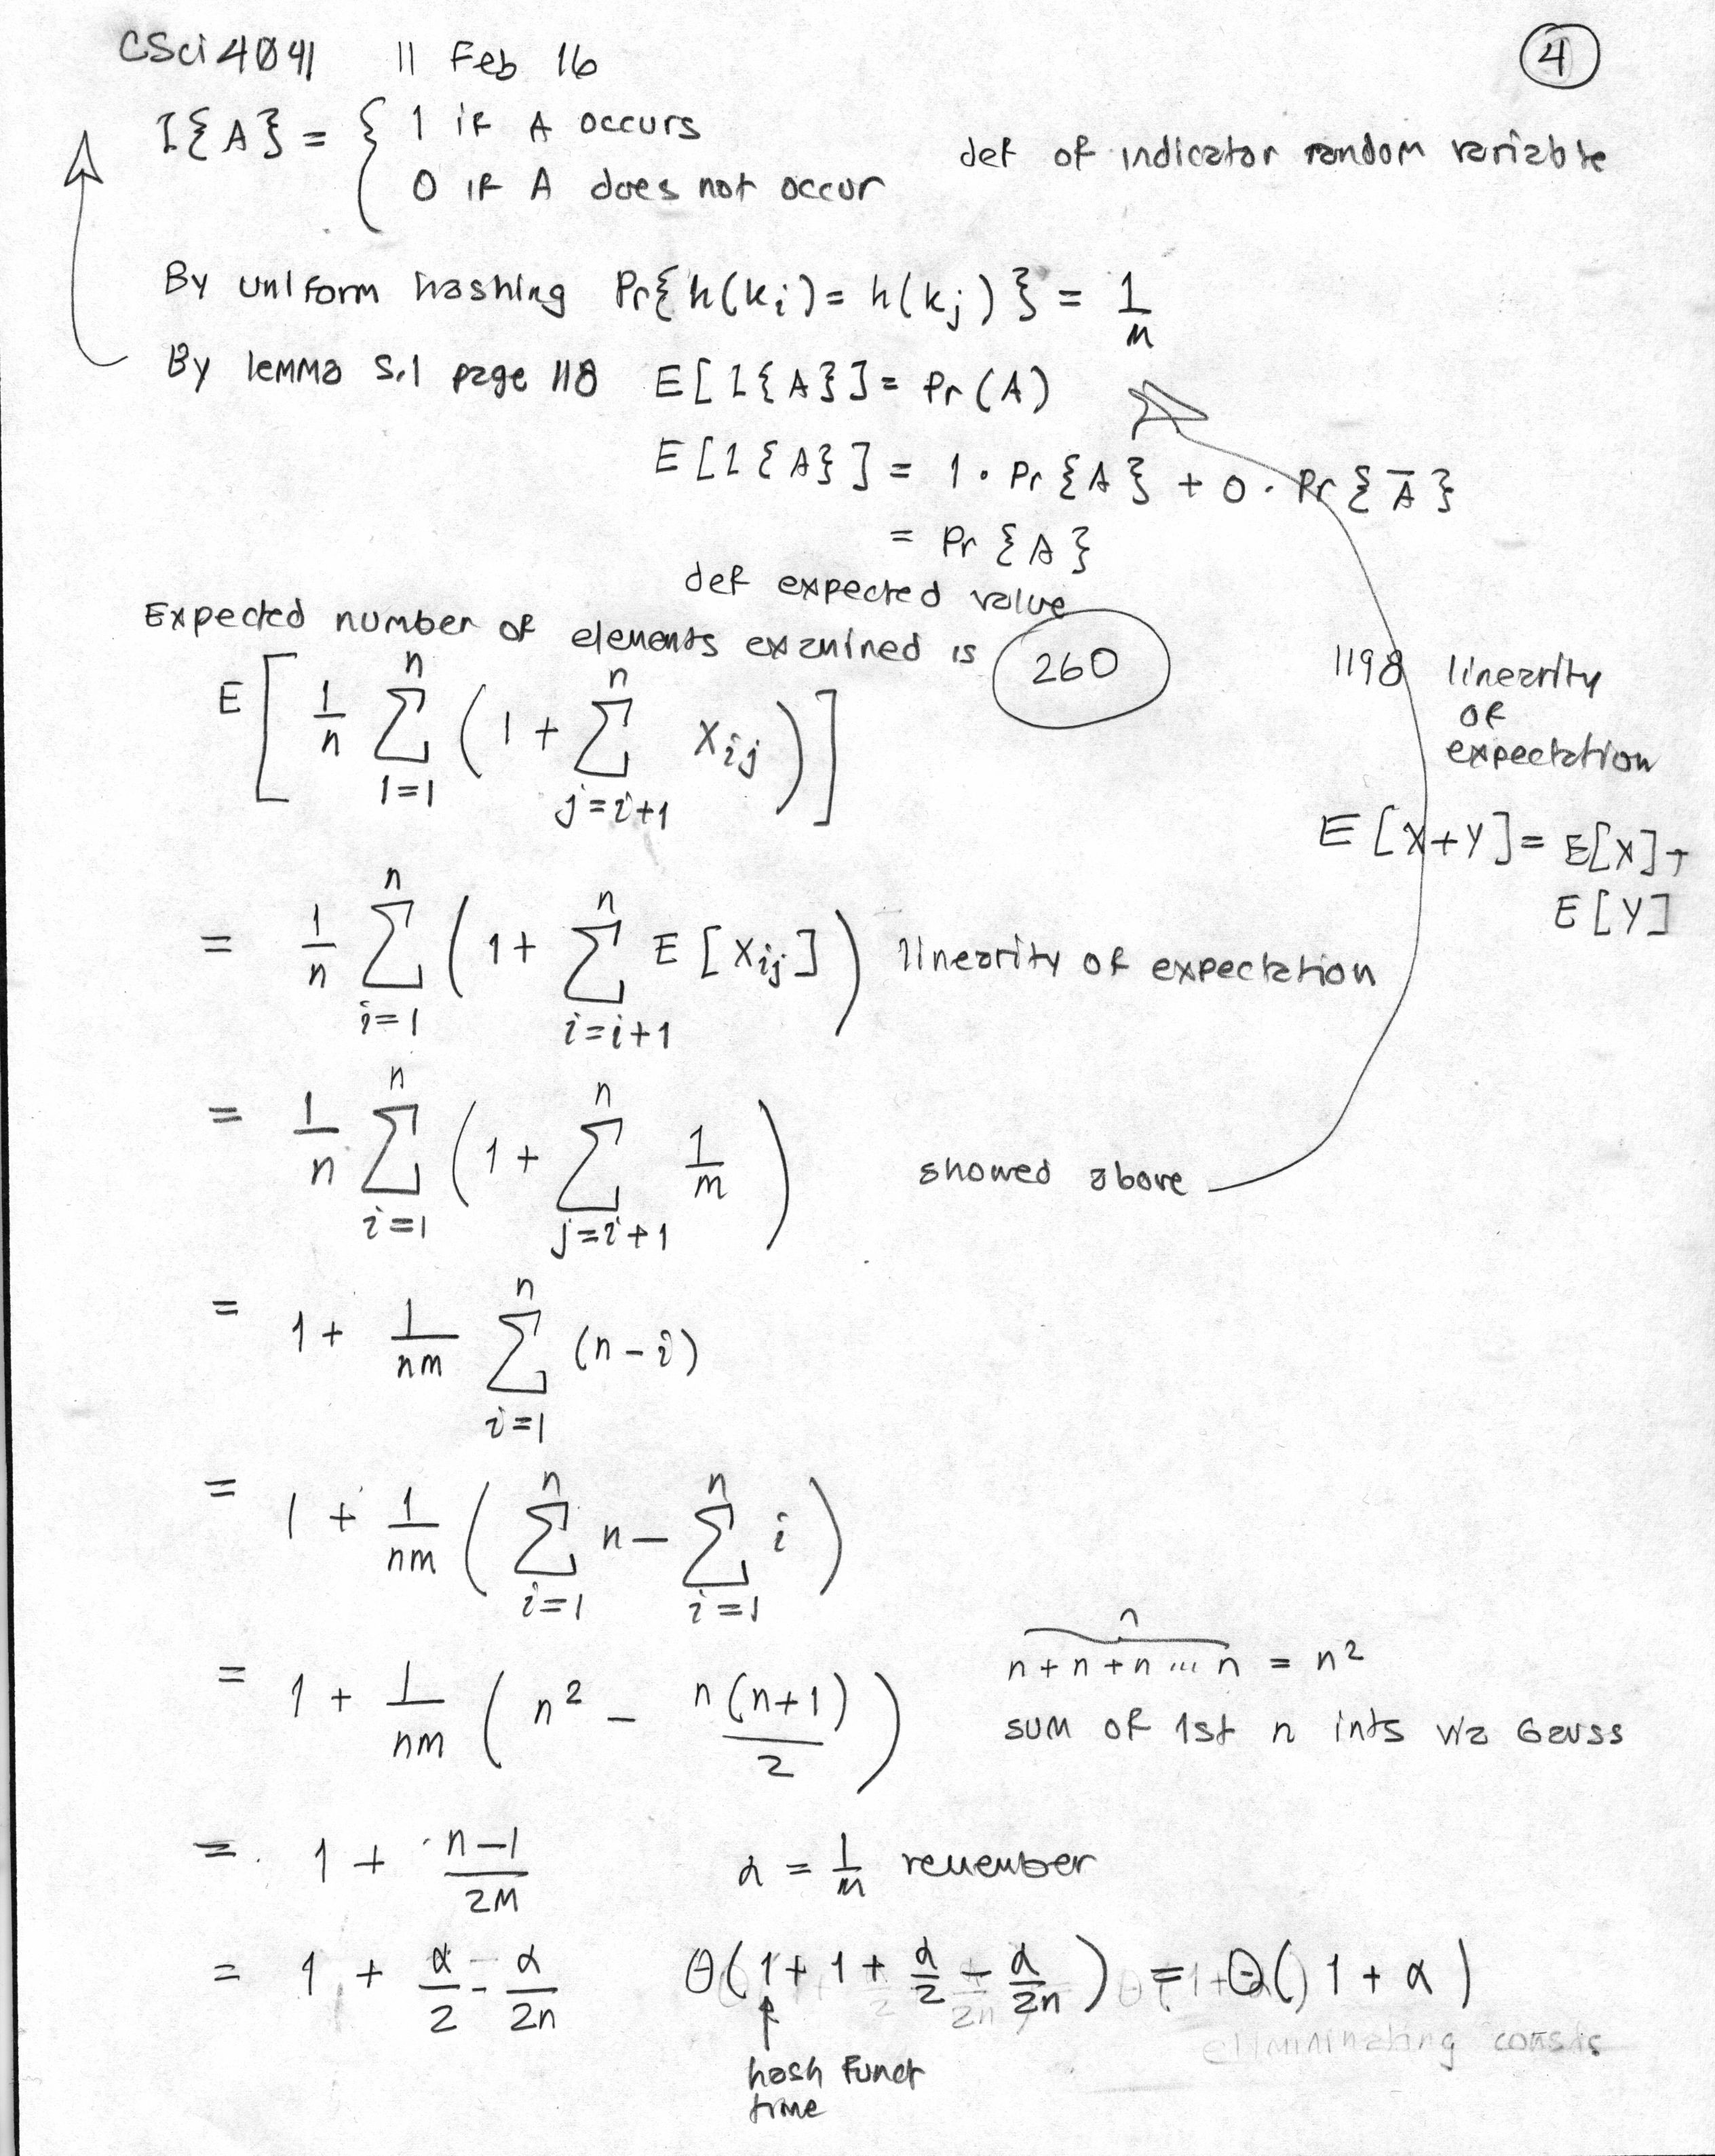 CSci 4041 11 Feb 16 4
I{A} = { 1 if A occurs
0 if A does not occur
def of indicator random variable
By uniform hashing Pr{h(ki) = h(kj)} = 1/m
By lemma 5.1 page 118 E[I{A}] = Pr(A)
E[I{A}] = 1 · Pr{A} + 0 · Pr{A̅}
= Pr{A}
def expected value
Expected number of elements examined is 260
E[ 1/n ∑_{i=1}^{n} ( 1 + ∑_{j=i+1}^{n} Xij ) ]
1198 linearity
of
expectation
E[X+Y] = E[X] +
E[Y]
= 1/n ∑_{i=1}^{n} ( 1 + ∑_{i=i+1}^{n} E[Xij] ) linearity of expectation
= 1/n ∑_{i=1}^{n} ( 1 + ∑_{j=i+1}^{n} 1/m ) showed above
= 1 + 1/nm ∑_{i=1}^{n} (n-i)
= 1 + 1/nm ( ∑_{i=1}^{n} n - ∑_{i=1}^{n} i )
n
n+n+n ... n = n²
= 1 + 1/nm ( n² - n(n+1)/2 )
sum of 1st n ints via Gauss
= 1 + n-1/2m α = 1/m remember
= 1 + α/2 - α/2n Θ(1+1+ α/2 - α/2n) = Θ(1+α)
elimininating consts
hash funct
time